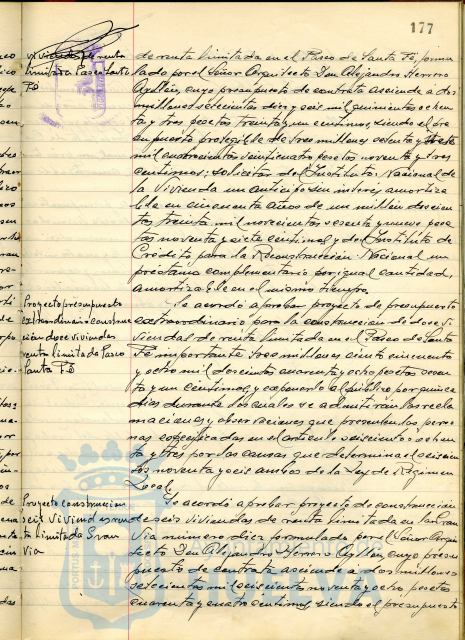 177
viviendas de renta
limitada Paseo Santa
Fé
de renta limitada en el Paseo de Santa Fé, formu
lado por el Señor Arquitecto Don Alejandro Herrero
Ayllón, cuyo presupuesto de contrata asciende a dos
millones setecientas diez y seis mil quinientas ochen
ta y tres pesetas treinta y un centimos, siendo el pre
supuesto protegible de tres millones
mil cuatrocientas veinticuatro pesetas noventa y tres
centimos; solicitar del Instituto Nacional de
la Vivienda un anticipo sin interés, amortiza
ble en cincuenta años de un millón doscien
tas treinta mil novecientas sesenta y nueve pese
tas noventa y siete centimos y del Instituto de
Credito para la Reconstrucción Nacional un
prestamo complementario por igual cantidad,
amortizable en el mismo tiempo.
Proyecto presupuesto
extraordinario construc
ción doce viviendas
renta limitada Paseo
Santa Fé
Se acordó aprobar proyecto de presupuesto
extraordinario para la construccion de doce vi
viendas de renta limitada en el Paseo de Santa
Fé importante tres millones ciento cincuenta
y ocho mil doscientas cuarenta y ocho pesetas
ta y un centimos, y exponerlo al público por quince
dias durante los cuales se admitirán las recla
maciones y observaciones que presenten las perso
nas especificadas en el articulo seiscientos ochen
ta y tres por las causas que determina el seiscien
tos noventa y seis ambos de la Ley de Régimen
Local.
Proyecto construccion
seis viviendas ren
ta limitada Gran
Via
Se acordó aprobar proyecto de construcción
de seis viviendas de renta limitada en la Gran
Via número diez formulado por el Señor Arqui
tecto Don Alejandro Herrero Ayllón, cuyo presu
puesto de contrata asciende a dos millones
setecientas mil seiscientas noventa y ocho pesetas
cuarenta y cuatro centimos, siendo el presupuesto